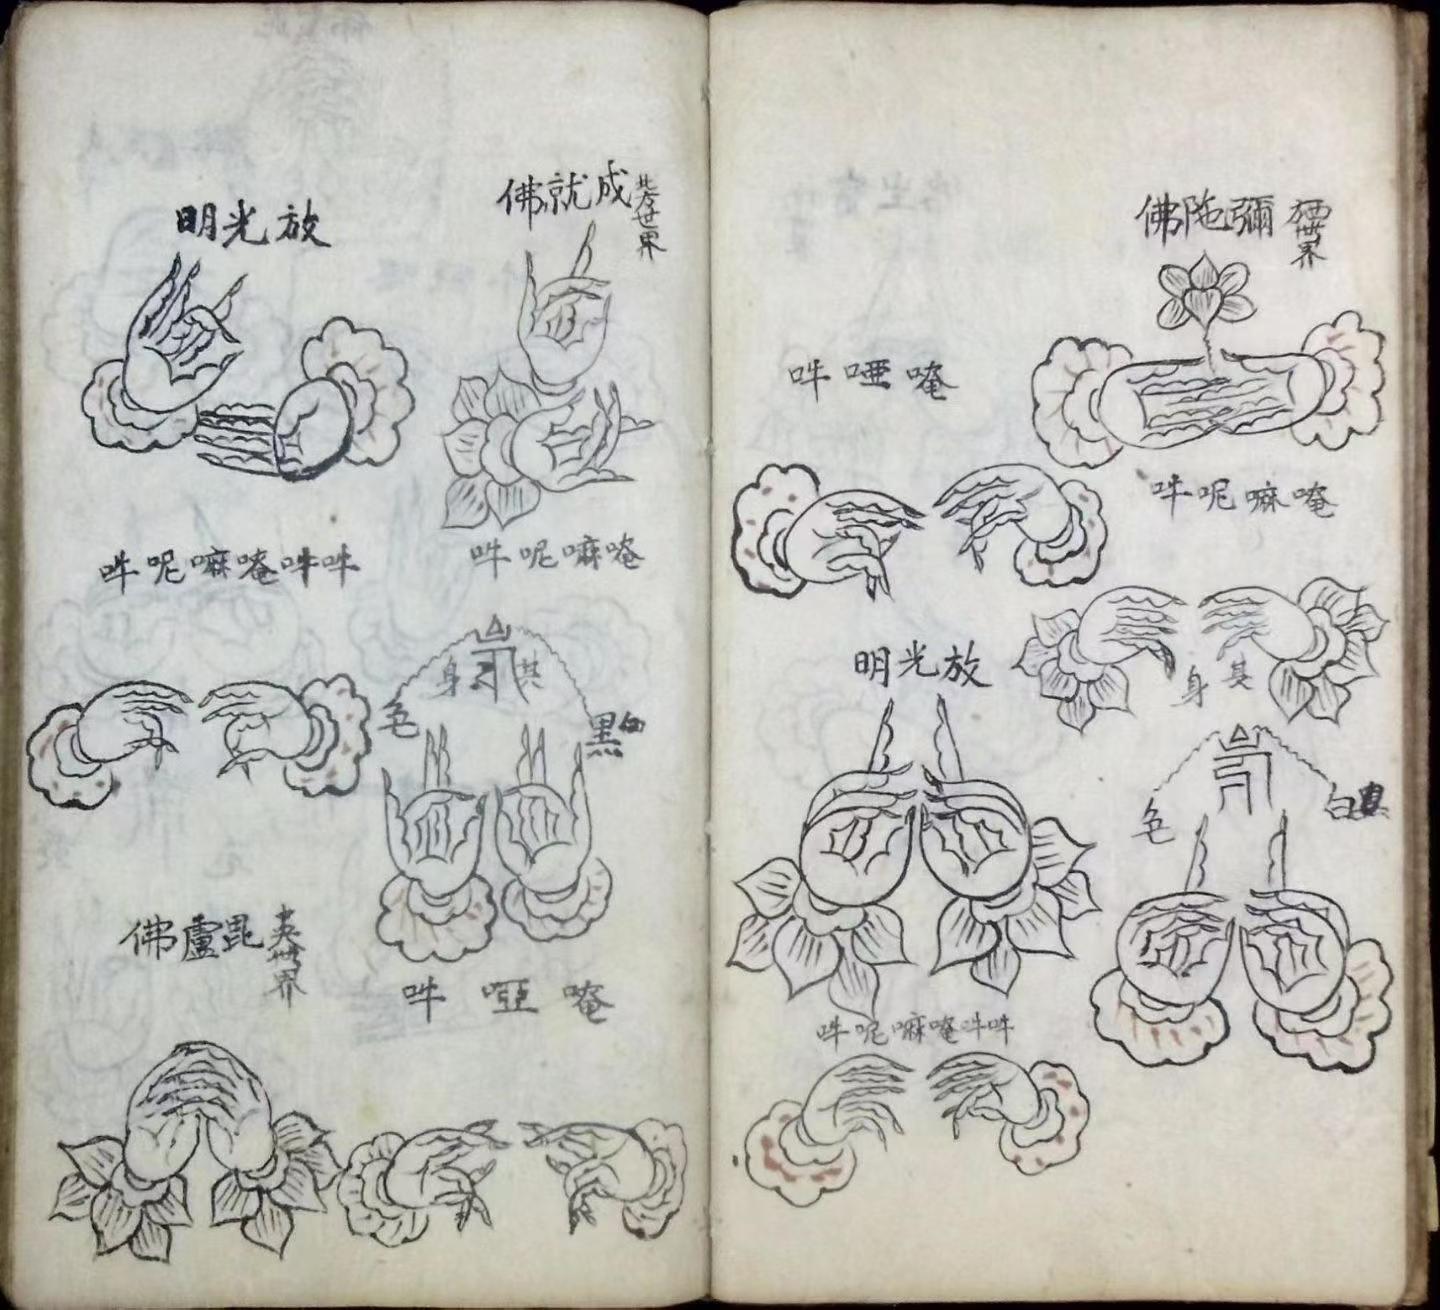 世界
彌陁佛
唵嘛呢吽
唵啞吽
其身
白色
放光明
吽吽唵嘛呢吽
世界
成就佛
唵嘛呢吽
放光明
吽吽唵嘛呢吽
其身
黑色
唵啞吽
央世界
毘盧佛